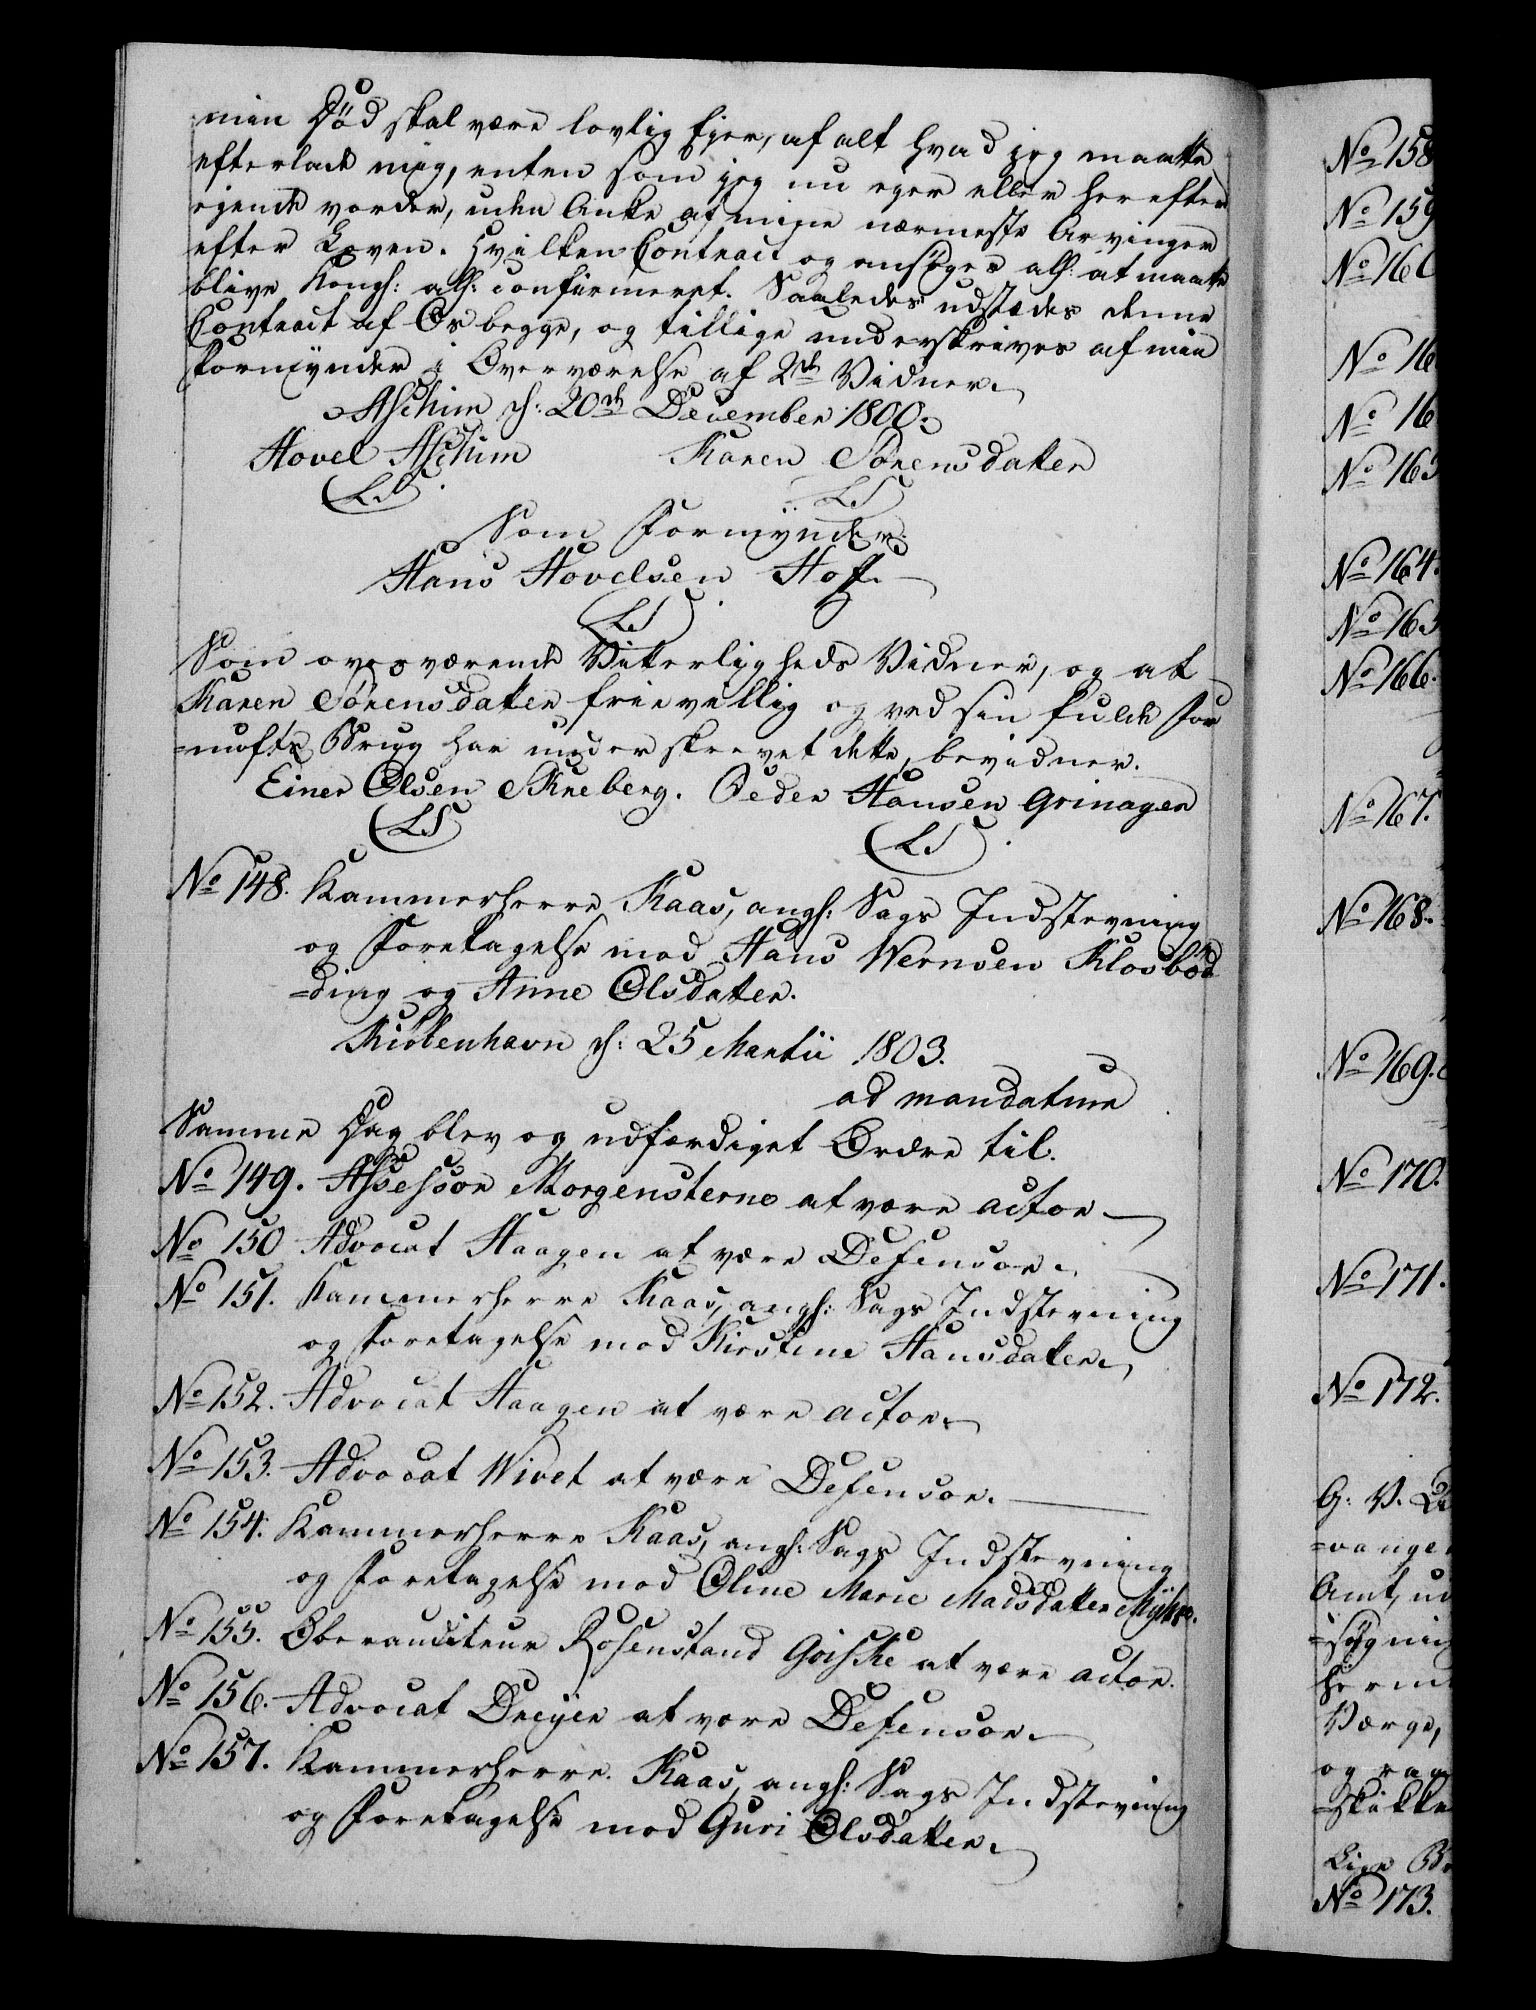 min Død skal være lovlig Ejer, af alt hvad jeg maatte
efterlade mig, enten som jeg nu eger eller herefter
ejende vorder, uden Anke af mine nærmeste Arvinger
efter Loven. Hvilken Contract og ansøges all: at maatte
blive Kongl: all: confirmeret. Saaledes udstædes denne
Contract af Os begge, og tillige underskrives af min
Formynder i Overværelse af 2de Vidner.
Aschim d: 20de December 1800.
Hovel Aschim Karen Sørensdatter
(LS) (LS)
Som Formynder.
Hans Hovelsen Hof.
(LS)
Som overværende Vitterligheds Vidner, og at
Karen Sørensdatter frievillig og ved sin fulde For
=nufts Brug har underskrevet dette, bevidner.
Einer Olsen Skreberg. Peder Hansen Grinager
(LS) (LS)
No 148. Kammerherre Kaas, angl: Sags Indstevning
og Foretagelse mod Hans Wernsen Klosbød
=ding og Anne Olsdatter.
Kiøbenhavn d: 25 Martii 1803.
ad mandatum
Samme Dag blev og udfærdiget Ordre til.
No 149. Assessor Morgenstierne at være actor
No 150 Advocat Haagen at være Defensor.
No 151. Kammerherre Kaas, angl: Sags Indstevning
og Foretagelse mod Kirstine Hansdatter.
No 152. Advocat Haagen at være actor.
No 153. Advocat Wivet at være Defensor.
No 154. Kammerherre Kaas, angl: Sags Indstevning
og Foretagelse mod Oline Marie Madsdatter
No 155. Oberauditeur Rosenstand Goiske at være actor.
No 156. Advocat Dreyer at være Defensor.
No 157. Kammerherre Kaas, angl: Sags Indstevning
og Foretagelse mod Guri Olsdatter.
No 158
No 159
No 160
No 16
No 16
No 163
No 164.
No 165
No 166.
No 167.
No 168.
No 169.
No 170.
No 171.
No 172.
G: V.
=vange
Amt, ud
=søgning
Værge,
og
=skikke
Lige
No 173.